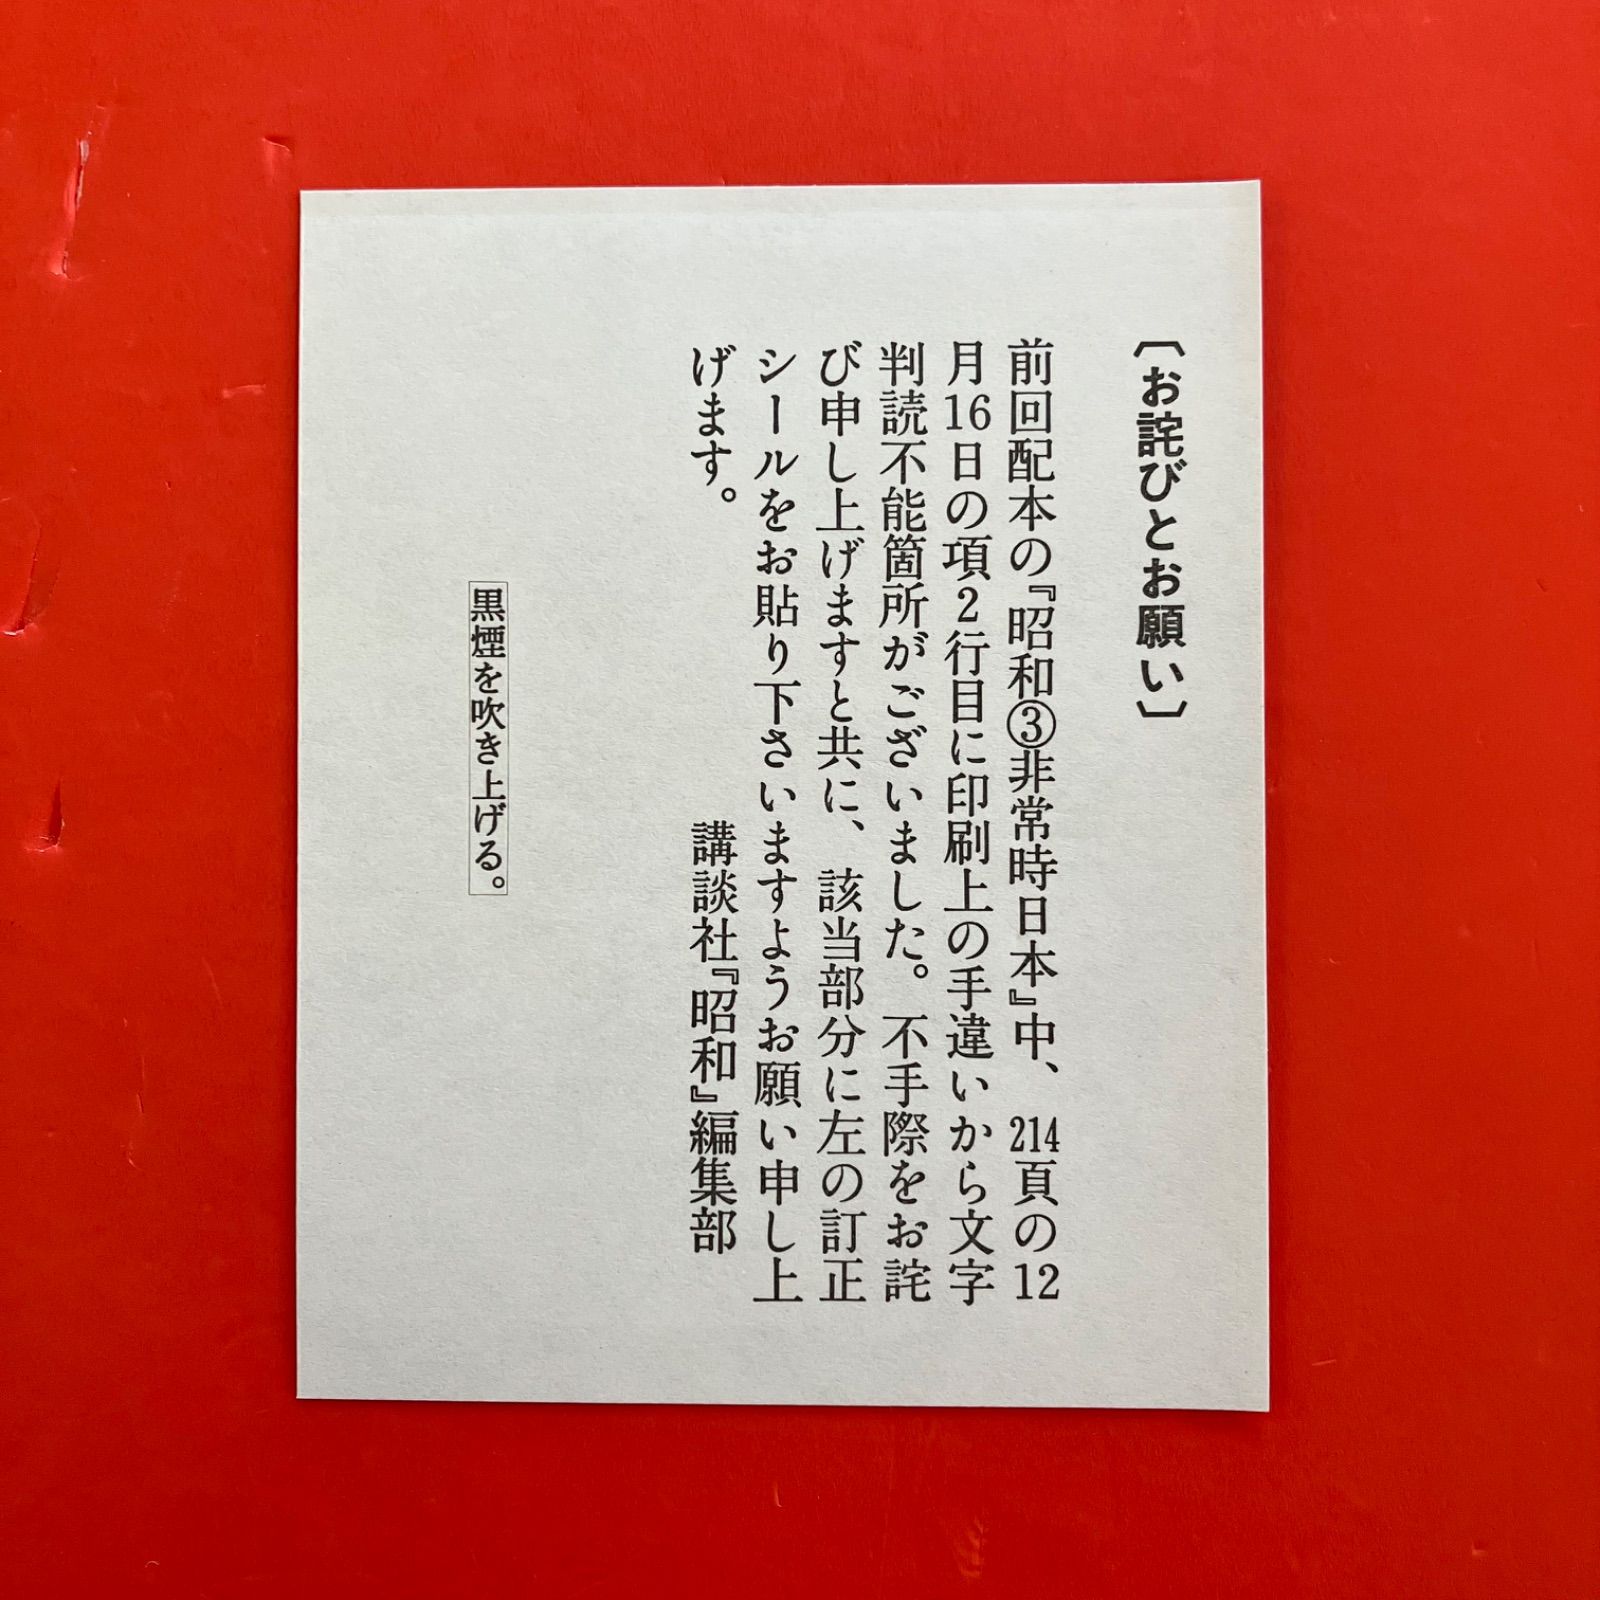 〔お詫びとお願い〕
前回配本の『昭和③非常時日本』中、214頁の12
月16日の項2行目に印刷上の手違いから文字
判読不能箇所がございました。不手際をお詫
び申し上げますと共に、該当部分に左の訂正
シールをお貼り下さいますようお願い申し上
げます。
講談社『昭和』編集部
黒煙を吹き上げる。